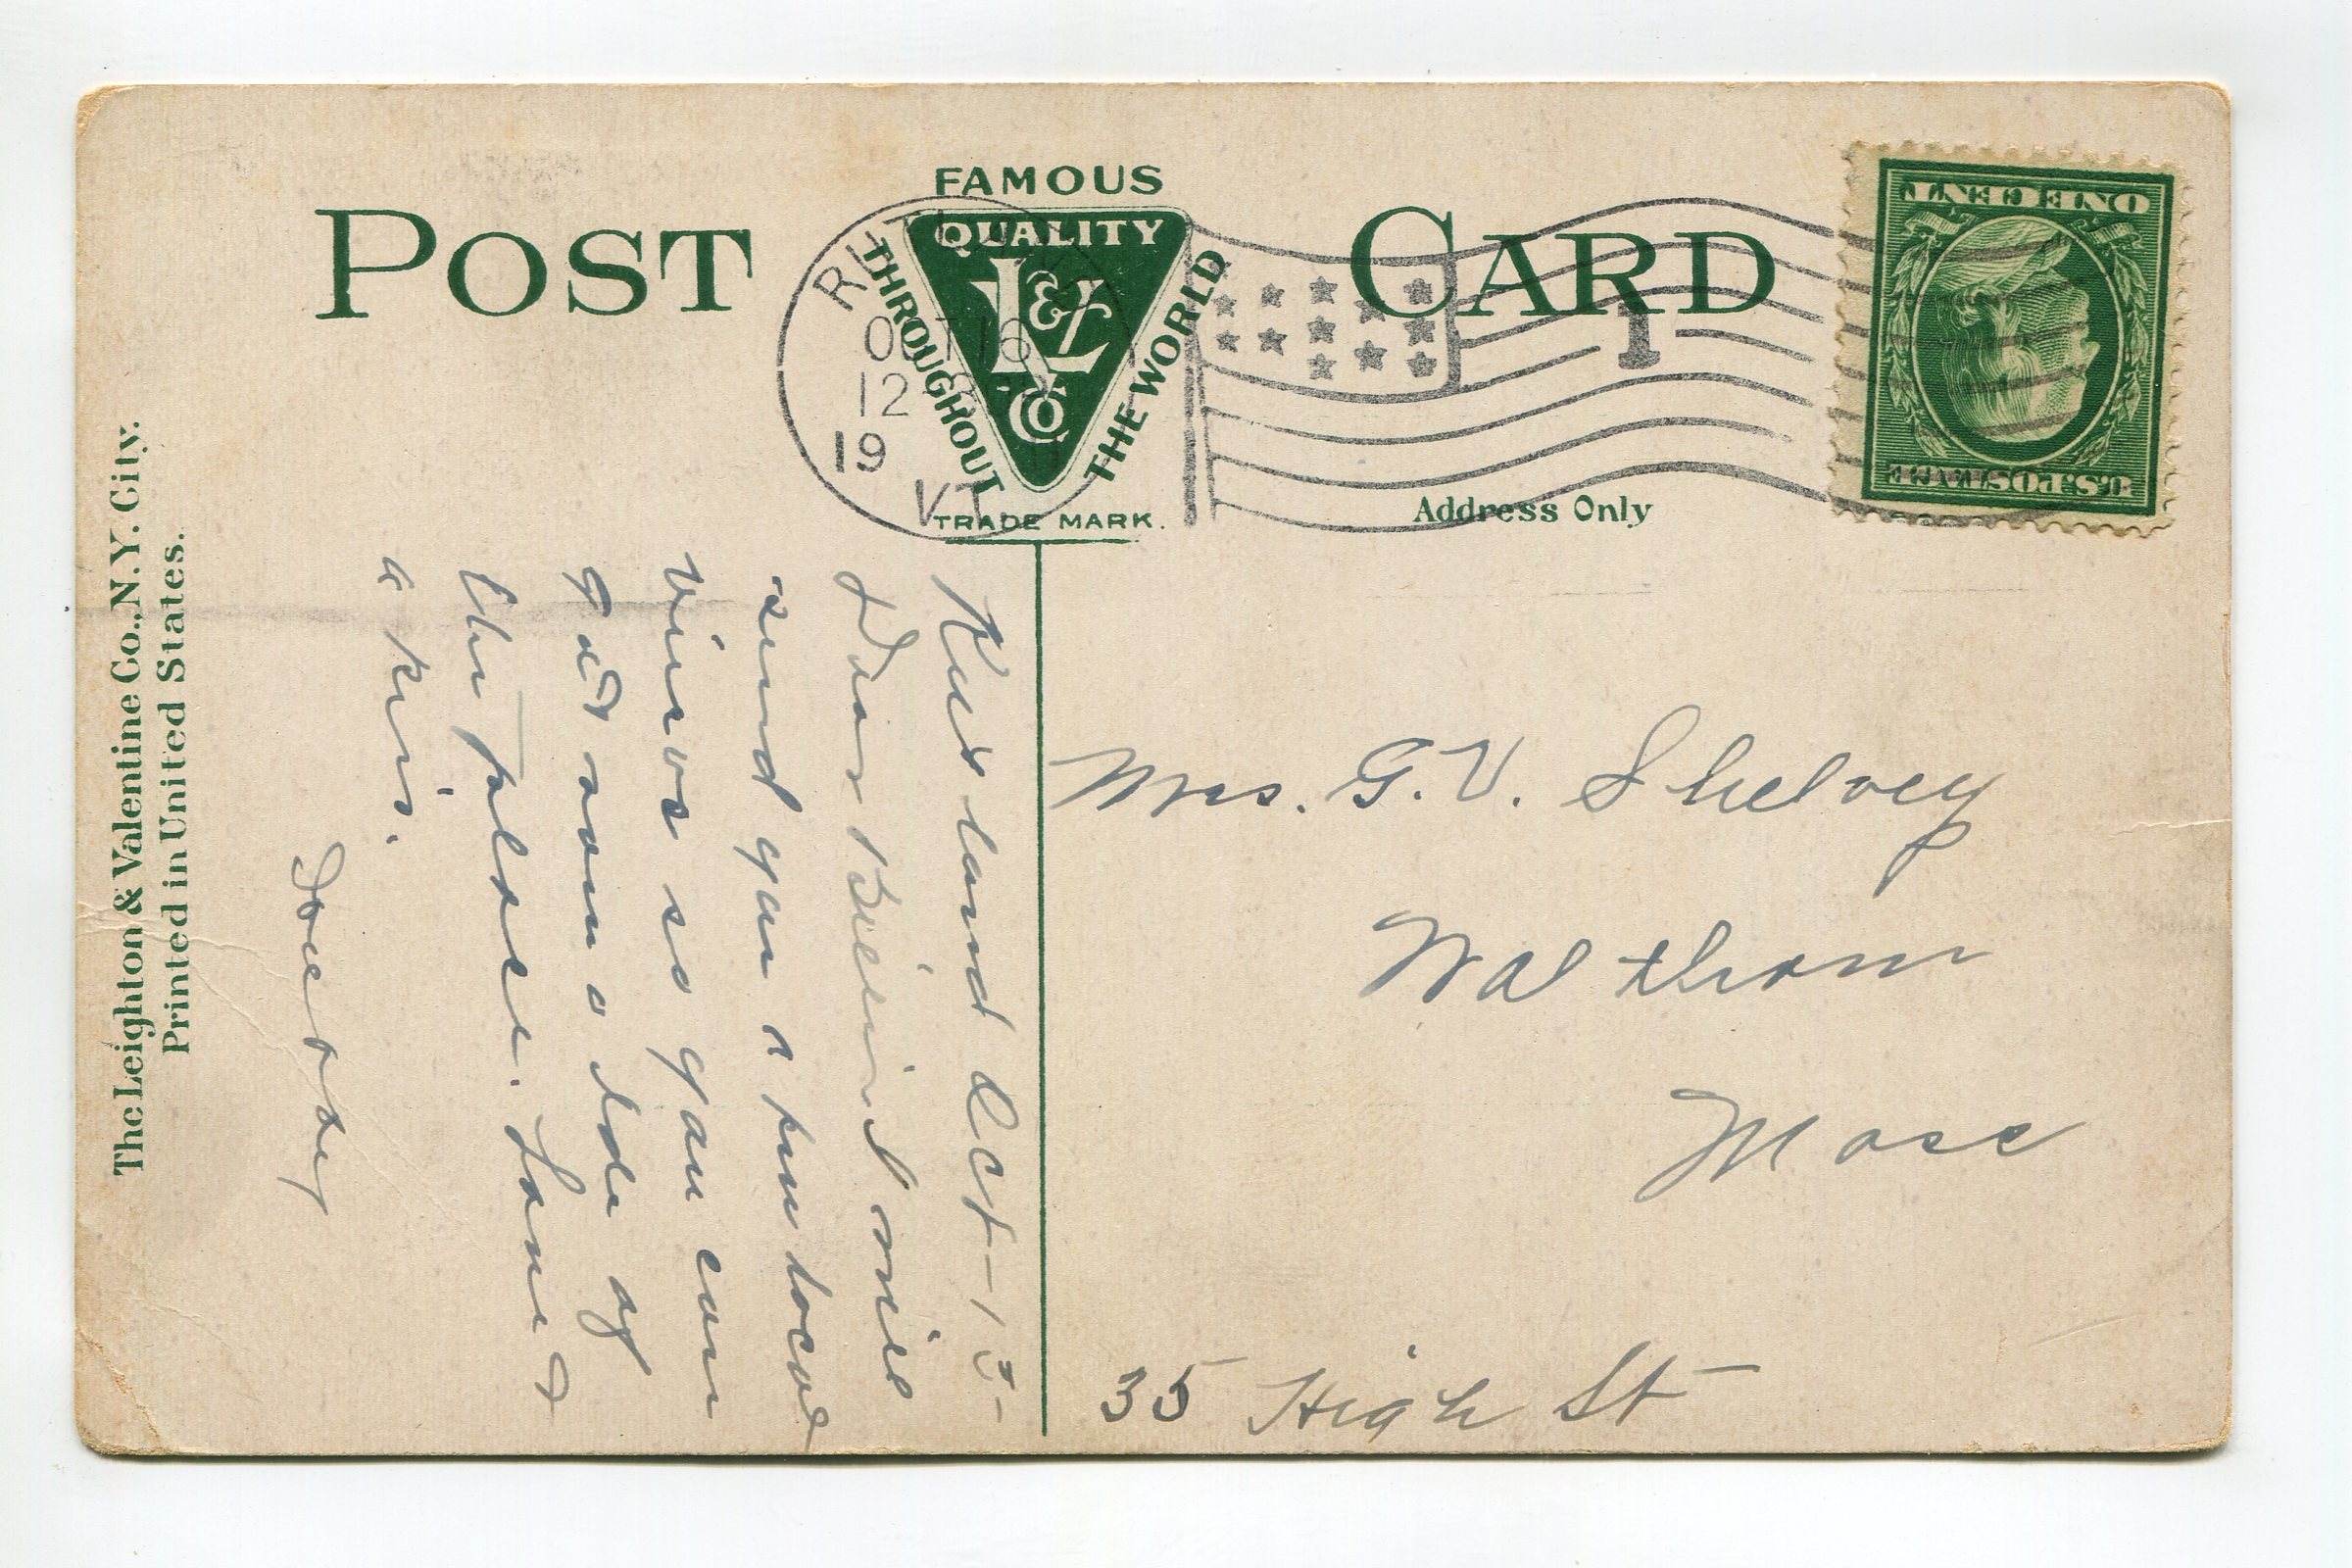 POST CARD
FAMOUS
QUALITY
THROUGHOUT
THE WORLD
L & V Co
TRADE MARK.
RUTLAND
OCT 10
12
19
VT.
1
ONE CENT
U.S. POSTAGE
Address Only
The Leighton & Valentine Co., N.Y. City.
Printed in United States.
Rutland Oct-10-
Dear Bee I will
send you a few local
views so you can
get some idea of
the place. Love &
a kiss.
Mrs. G. V. Shelvey
Waltham
Mass
35 High St